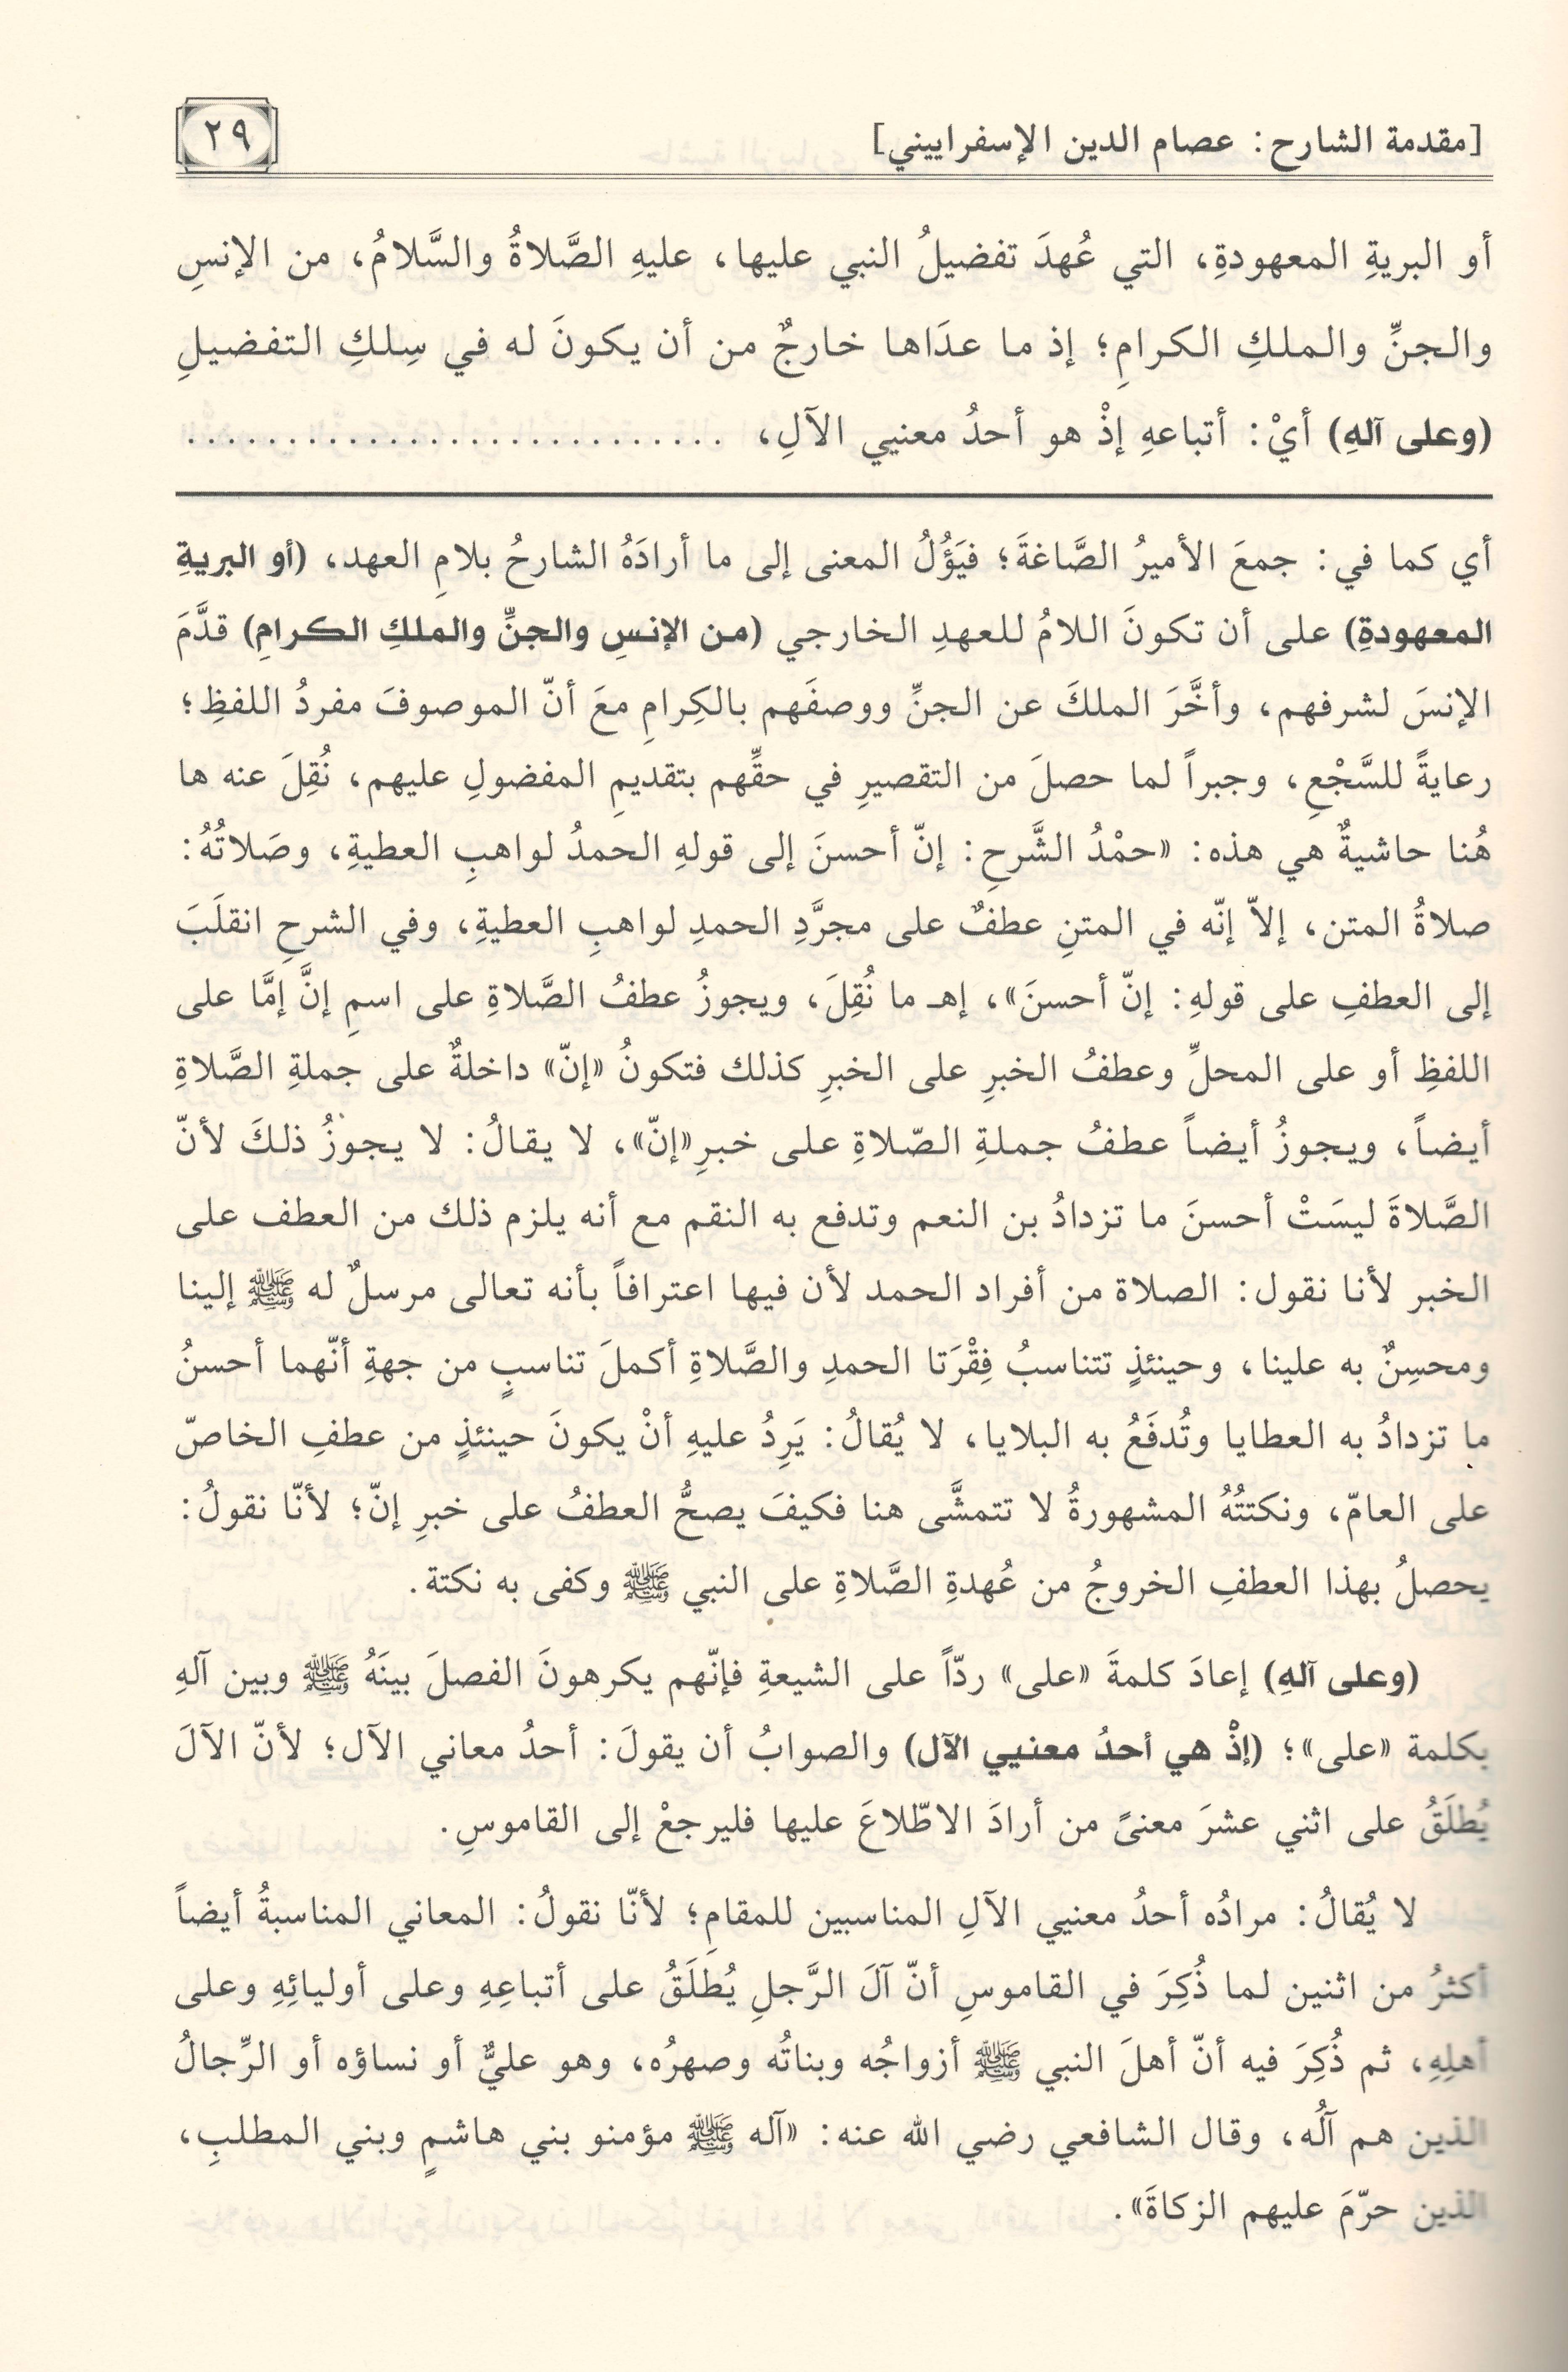 [مقدمة الشارح: عصام الدين الإسفراييني]
٢٩
أو البريةِ المعهودةِ، التي عُهدَ تفضيلُ النبي عليها، عليهِ الصَّلاةُ والسَّلامُ، من الإنسِ
والجنِّ والملكِ الكرامِ؛ إذ ما عدَاها خارجٌ من أن يكونَ له في سِلكِ التفضيلِ
(وعلى آلهِ) أيْ: أتباعهِ إذْ هو أحدُ معنيي الآلِ، . . . . . . . . . . . . . . . . . . . . . . . . . . .
أي كما في: جمعَ الأميرُ الصَّاغةَ؛ فيَؤُلُ المعنى إلى ما أرادَهُ الشارحُ بلامِ العهد، (أو البريةِ
المعهودةِ) على أن تكونَ اللامُ للعهدِ الخارجي (من الإنسِ والجنِّ والملكِ الكرامِ) قدَّمَ
الإنسَ لشرفهم، وأخَّرَ الملكَ عن الجنِّ ووصفَهم بالكِرامِ معَ أنّ الموصوفَ مفردُ اللفظِ؛
رعايةً للسَّجْعِ، وجبراً لما حصلَ من التقصيرِ في حقِّهم بتقديمِ المفضولِ عليهم، نُقِلَ عنه ها
هُنا حاشيةٌ هي هذه: «حمْدُ الشَّرحِ: إنّ أحسنَ إلى قولهِ الحمدُ لواهبِ العطيةِ، وصَلاتُهُ:
صلاةُ المتن، إلاّ إنّه في المتنِ عطفٌ على مجرَّدِ الحمدِ لواهبِ العطيةِ، وفي الشرحِ انقلَبَ
إلى العطفِ على قولهِ: إنّ أحسنَ»، إهـ ما نُقِلَ، ويجوزُ عطفُ الصَّلاةِ على اسمِ إنَّ إمَّا على
اللفظِ أو على المحلِّ وعطفُ الخبرِ على الخبرِ كذلك فتكونُ «إنّ» داخلةٌ على جملةِ الصَّلاةِ
أيضاً، ويجوزُ أيضاً عطفُ جملةِ الصّلاةِ على خبرِ«إنّ»، لا يقالُ: لا يجوزُ ذلكَ لأنّ
الصَّلاةَ ليسَتْ أحسنَ ما تزدادُ بن النعم وتدفع به النقم مع أنه يلزم ذلك من العطف على
الخبر لأنا نقول: الصلاة من أفراد الحمد لأن فيها اعترافاً بأنه تعالى مرسلٌ له ﷺ إلينا
ومحسِنٌ به علينا، وحينئذٍ تتناسبُ فِقْرَتا الحمدِ والصَّلاةِ أكملَ تناسبٍ من جهةِ أنّهما أحسنُ
ما تزدادُ به العطايا وتُدفَعُ به البلايا، لا يُقالُ: يَرِدُ عليهِ أنْ يكونَ حينئذٍ من عطفِ الخاصّ
على العامّ، ونكتتُهُ المشهورةُ لا تتمشَّى هنا فكيفَ يصحُّ العطفُ على خبرِ إنّ؛ لأنّا نقولُ:
يحصلُ بهذا العطفِ الخروجُ من عُهدةِ الصَّلاةِ على النبي ﷺ وكفى به نكتة.
(وعلى آلهِ) إعادَ كلمةَ «على» ردّاً على الشيعةِ فإنّهم يكرهونَ الفصلَ بينَهُ ﷺ وبين آلهِ
بكلمة «على»؛ (إذْ هي أحدُ معنيي الآل) والصوابُ أن يقولَ: أحدُ معاني الآل؛ لأنّ الآلَ
يُطلَقُ على اثني عشرَ معنىً من أرادَ الاطّلاعَ عليها فليرجعْ إلى القاموسِ.
لا يُقالُ: مرادُه أحدُ معنيي الآلِ المناسبين للمقامِ؛ لأنّا نقولُ: المعاني المناسبةُ أيضاً
أكثرُ من اثنين لما ذُكِرَ في القاموسِ أنّ آلَ الرَّجلِ يُطلَقُ على أتباعِهِ وعلى أوليائِهِ وعلى
أهلِهِ، ثم ذُكِرَ فيه أنّ أهلَ النبي ﷺ أزواجُه وبناتُه وصهرُه، وهو عليٌّ أو نساؤه أو الرِّجالُ
الذين هم آلُه، وقال الشافعي رضي الله عنه: «آله ﷺ مؤمنو بني هاشمٍ وبني المطلبِ،
الذين حرّمَ عليهم الزكاةَ».